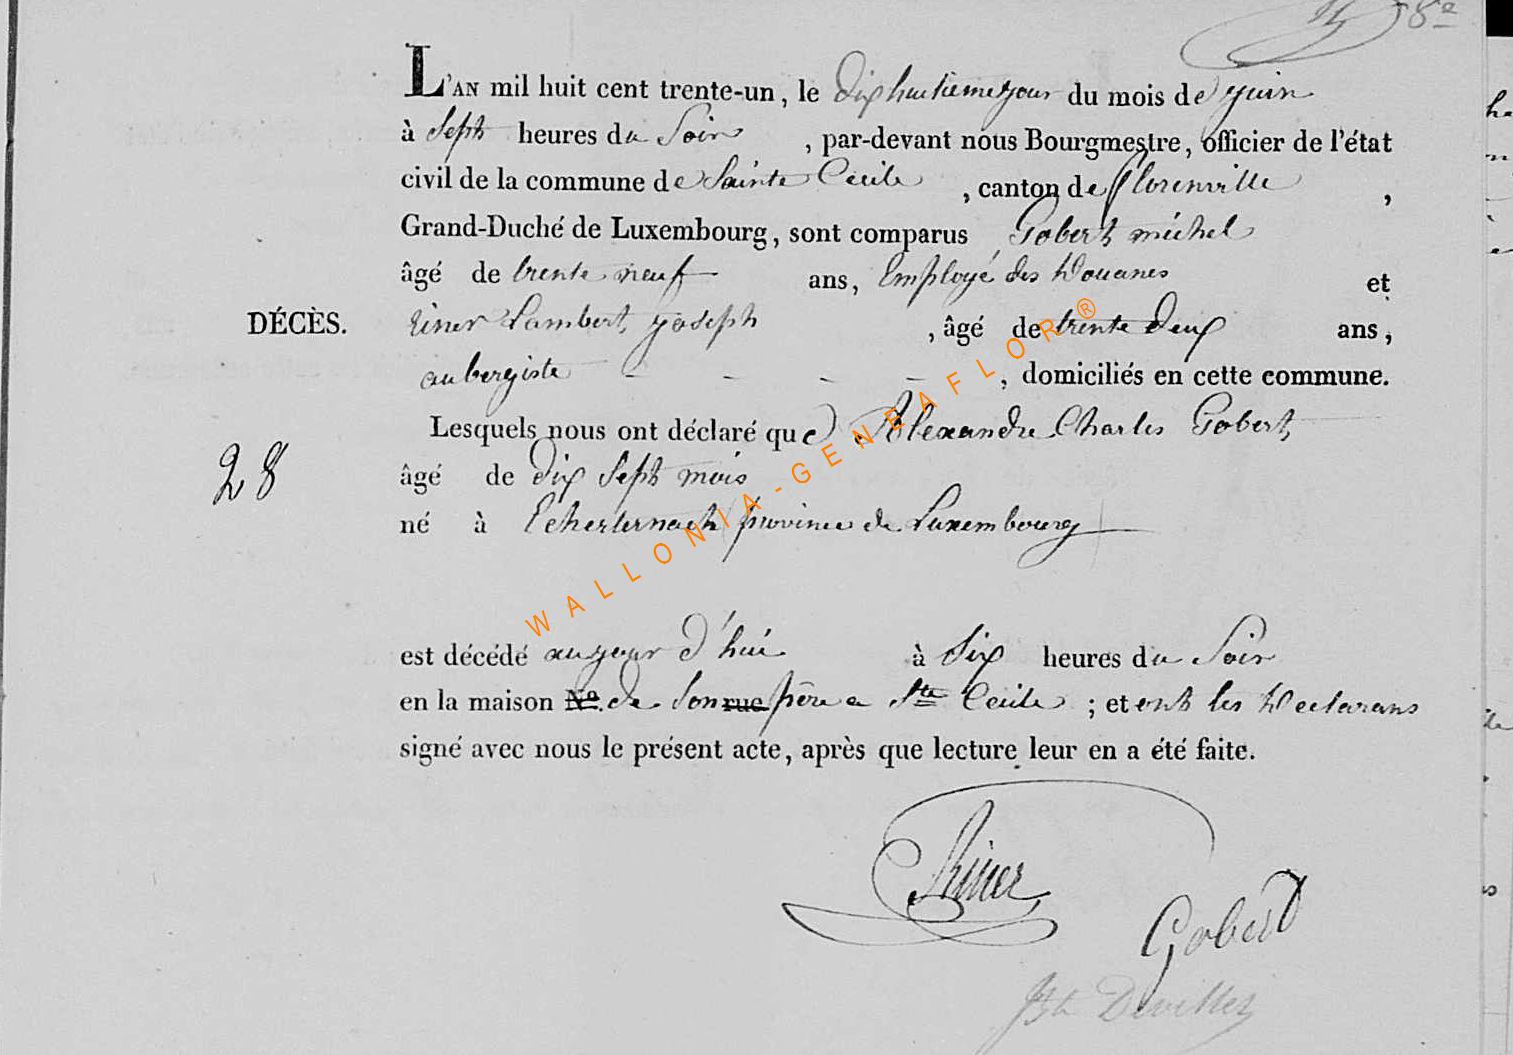 58e
L'AN mil huit cent trente-un, le dixhuitieme jour du mois de juin
à Sept heures du Soir , par-devant nous Bourgmestre, officier de l'état
civil de la commune de Sainte Cecile , canton de florenville ,
Grand-Duché de Luxembourg, sont comparus Gobert michel
âgé de trente neuf ans, Employé des Douanes et
DÉCÈS. Riner Lambert joseph , âgé de trente deux ans,
aubergiste - - - - , domiciliés en cette commune.
Lesquels nous ont déclaré que Alexandre Charles Gobert
28 âgé de dix Sept mois
né à Echerternach province de Luxembourg
est décédé aujour d'hui à Six heures du Soir
en la maison No. de Son rue père a Ste Cecile ; et ont les Declarans
signé avec nous le présent acte, après que lecture leur en a été faite.
Riner
Gobert
Jh Devillez
WALLONIA-GENEAFLOR®